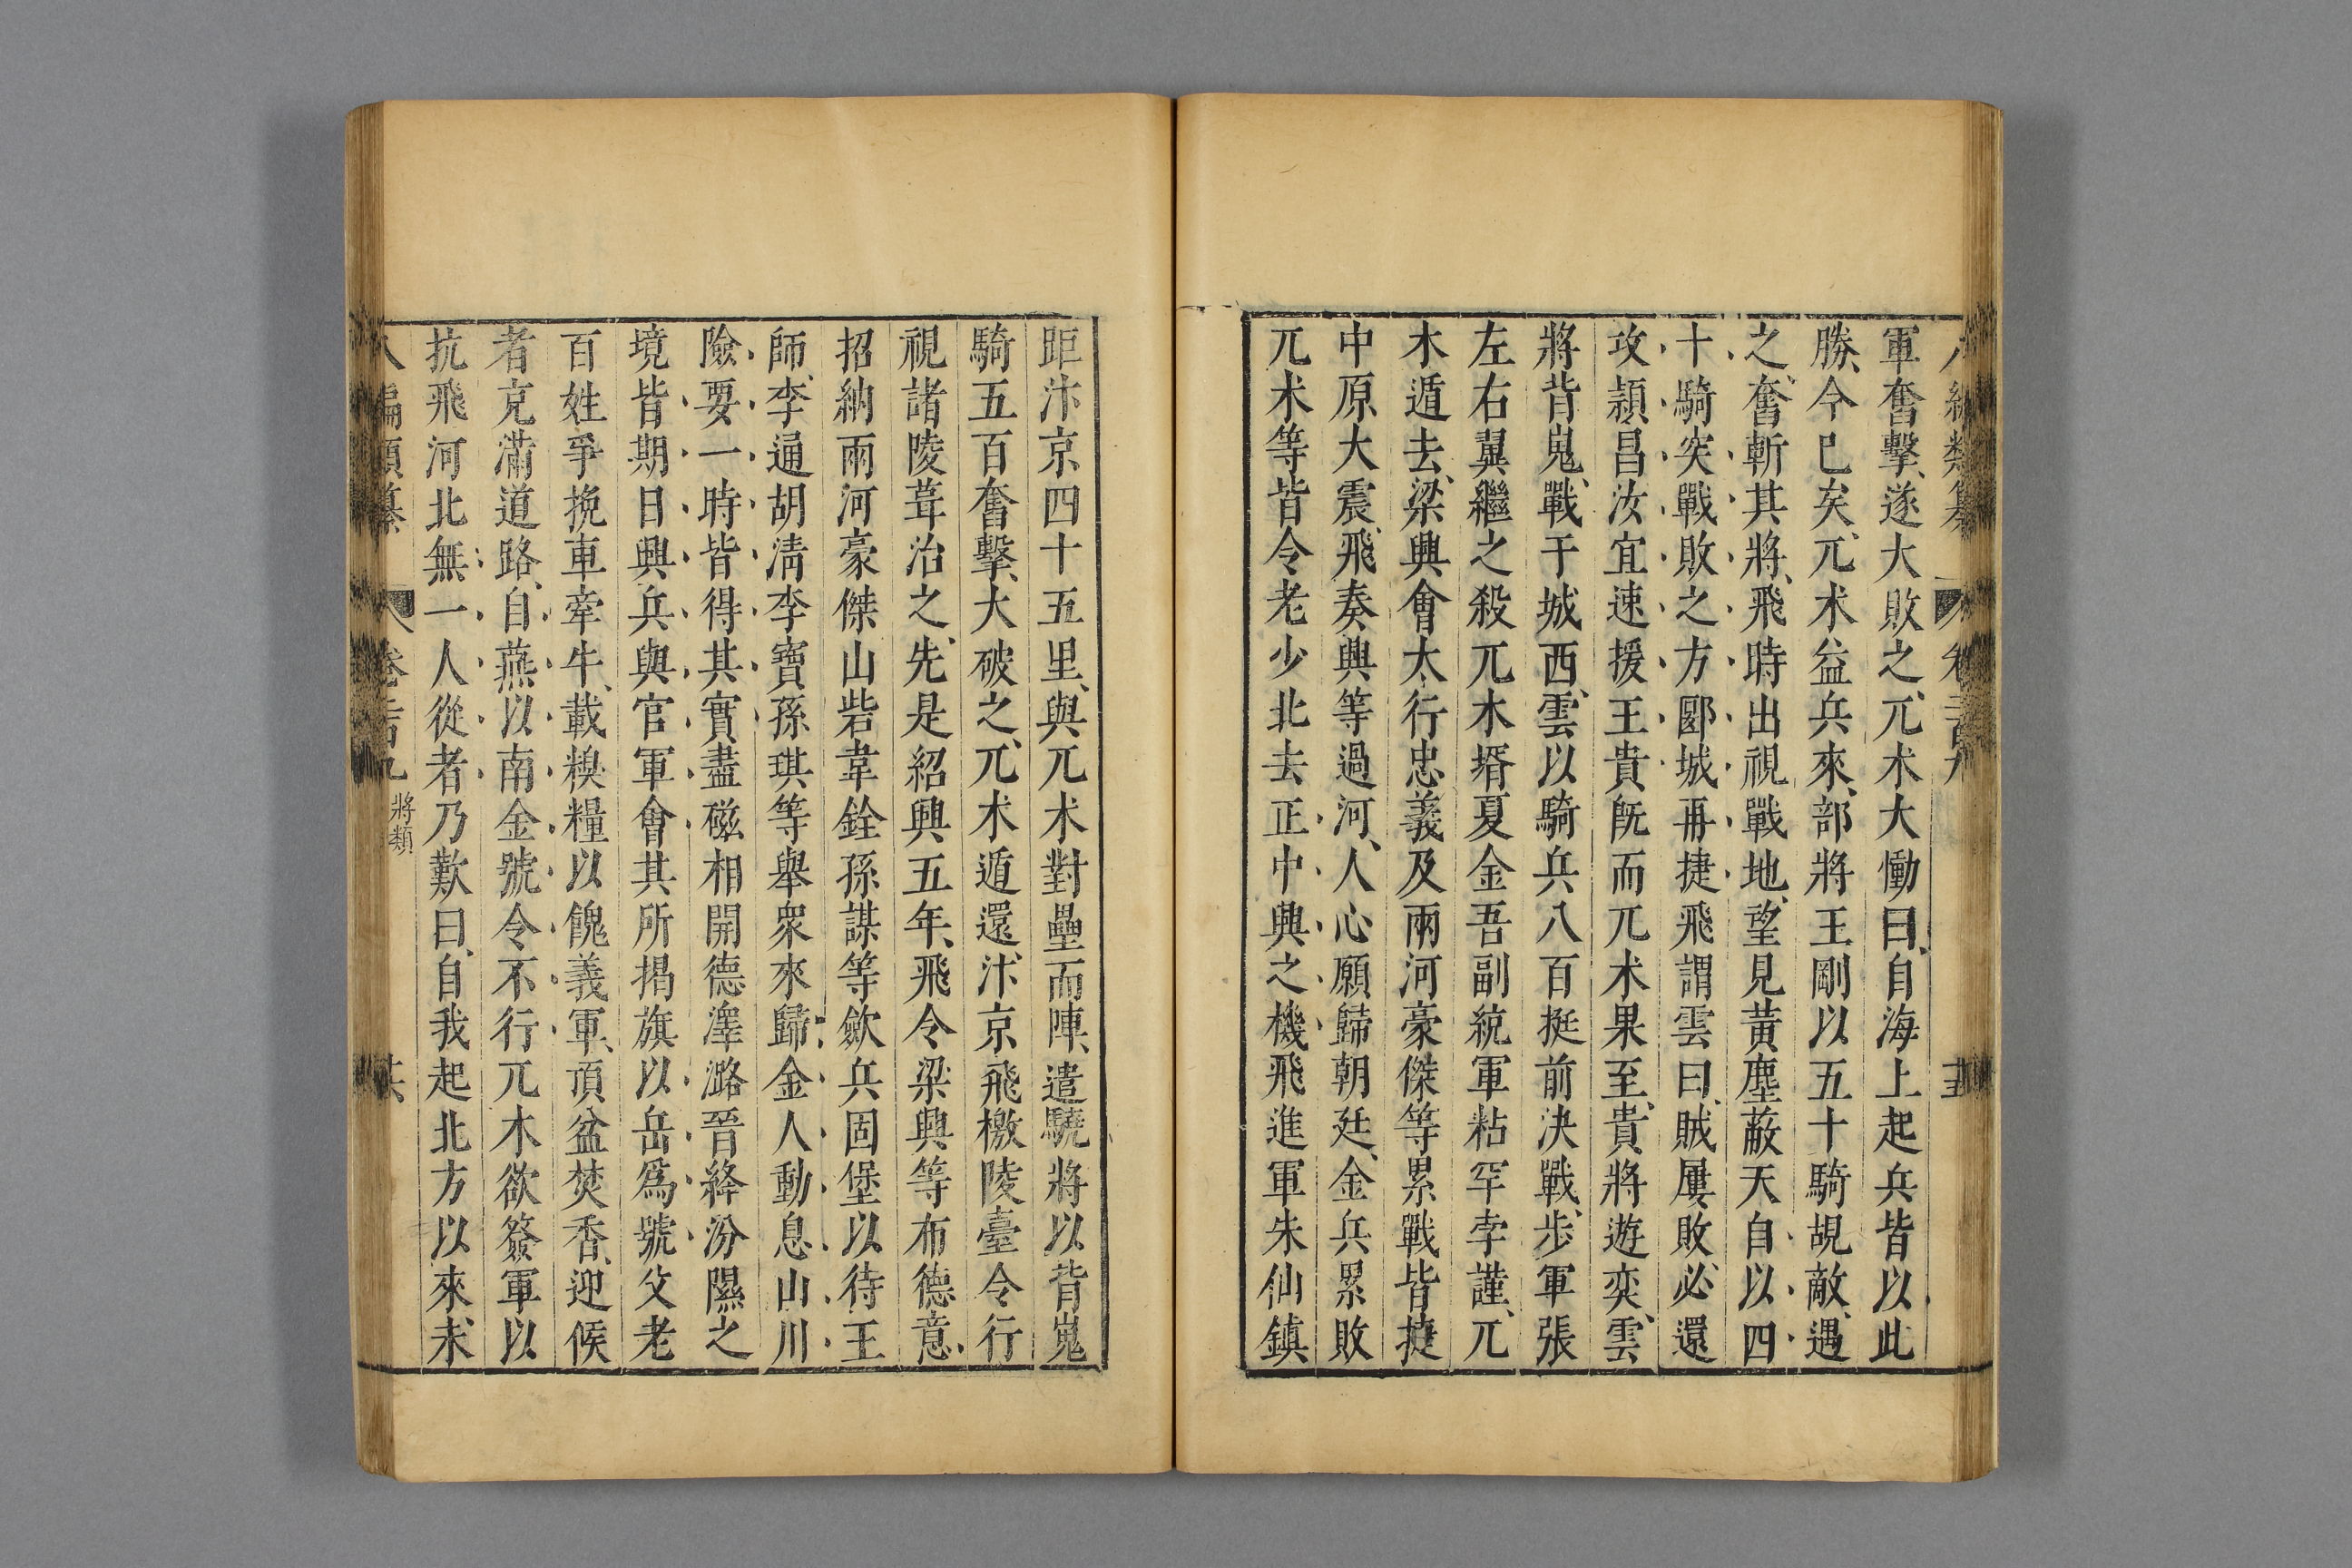 編類纂
軍奮擊、遂大敗之、兀朮大慟曰、自海上起兵皆以此
勝、今已矣、兀朮益兵來、部將王剛以五十騎覘敵、遇
之、奮斬其將、飛時出視戰地、望見黃塵蔽天自以四
十騎突戰敗之方郾城再捷飛謂雲曰、賊屢敗、必還
攻潁昌汝宜速援王貴旣而兀朮果至、貴將遊奕、雲
將背嵬、戰于城西、雲以騎兵八百挺前決戰、步軍張
左右翼繼之殺兀朮壻夏金吾副統軍粘罕孛謹、兀
朮遁去、梁興會太行忠義及兩河豪傑等累戰皆捷
中原大震、飛奏興等過河、人心願歸朝廷、金兵累敗
兀朮等皆令老少北去正中興之機飛進軍朱仙鎮
距汴京四十五里、與兀朮對壘而陣、遣驍將以背嵬
騎五百奮擊、大破之、兀朮遁還、汴京飛檄陵臺令行
視諸陵葺治之、先是紹興五年、飛令梁興等布德意、
招納兩河豪傑山砦韋銓孫謀等歛兵固堡以待王
師、李通胡淸李寶孫琪等舉衆來歸、金人動息山川
險要一時皆得其實盡磁相開德澤潞晉絳汾隰之
境皆期日興兵與官軍會其所揭旗以岳爲號父老
百姓爭挽車牽牛、載糗糧以餽義軍、頂盆焚香、迎候
者充滿道路、自燕以南金號令不行兀朮欲簽軍以
抗飛河北無一人從者乃歎曰、自我起北方以來、未
八編類纂 卷 將類